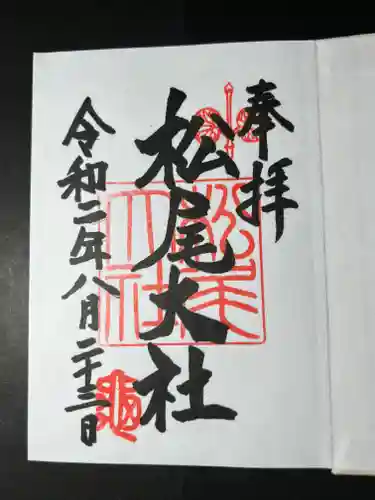 奉拝
松尾大社
令和二年八月二十三日
松尾大社